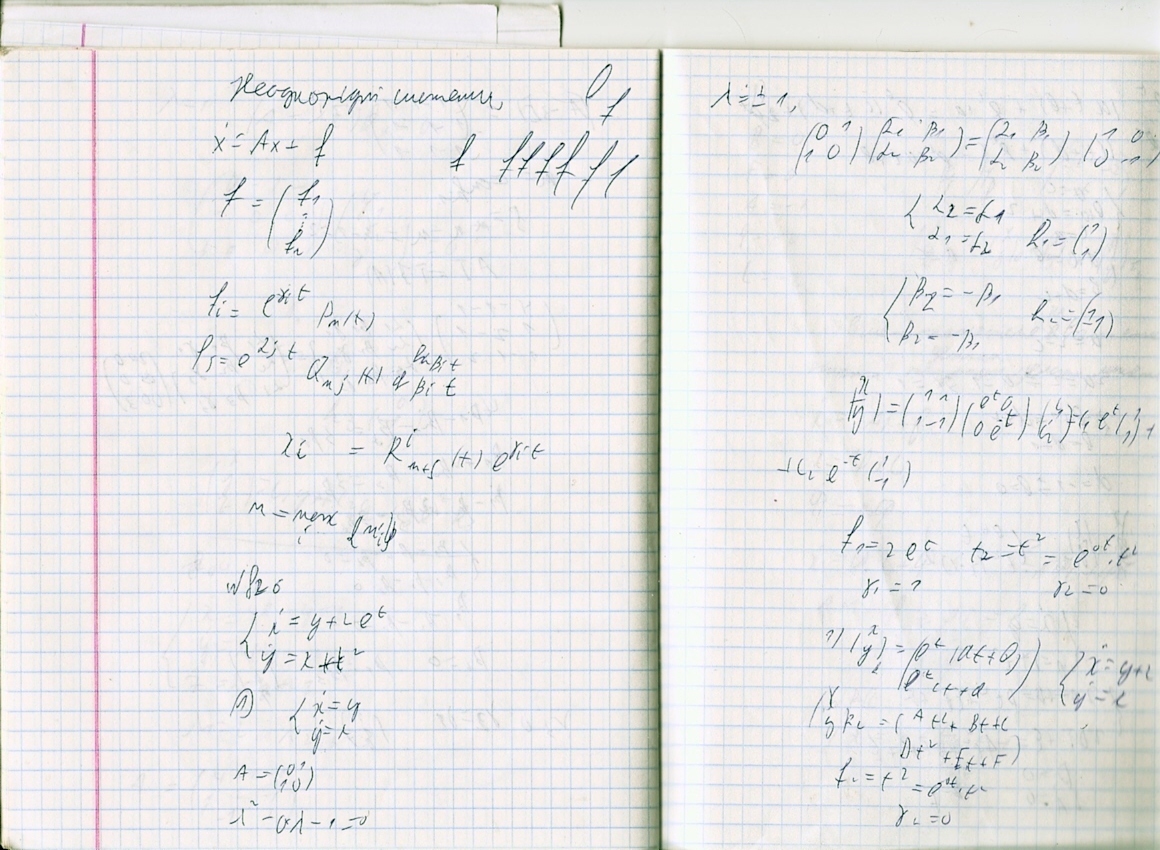 Неоднорідні системи,
ẋ = Ax + f
f fffff f
f = (f₁ ⋮ fₙ)
fᵢ = e^{γᵢt} Pₘ(t)
λᵢ = Rⁱₘ₊ₛ(t) e^{γᵢt}
m = max {mᵢ}
i
№826
{ ẋ = y + 2e^t
ẏ = x + t²
1) { ẋ = y
ẏ = x
A = (0 1
1 0)
λ² - 0λ - 1 = 0
λ = ± 1,
(0 1 (α₁ β₁ = (α₁ β₁ (1 0
1 0) α₂ β₂) α₂ β₂) 0 -1)
{ α₂ = α₁
α₁ = α₂ h₁ = (1 1)
{ β₂ = -β₁
β₂ = -β₁ h₂ = (1 -1)
(x y) = (1 1 1 -1) (e^t 0 0 e^{-t}) (c₁ c₂) = c₁ e^t (1 1) +
+ c₂ e^{-t} (1 -1)
f₁ = 2e^t f₂ = t² = e^{0t}·t²
γ₁ = 1 γ₂ = 0
1) (x y) = (e^t (at+b)
e^t ct+d)
{ ẋ = y+2
ẏ = x
(x y)₂ = (At² + Bt + C
Dt² + Et + F)
f₂ = t² = e^{0t}·t²
γ₂ = 0